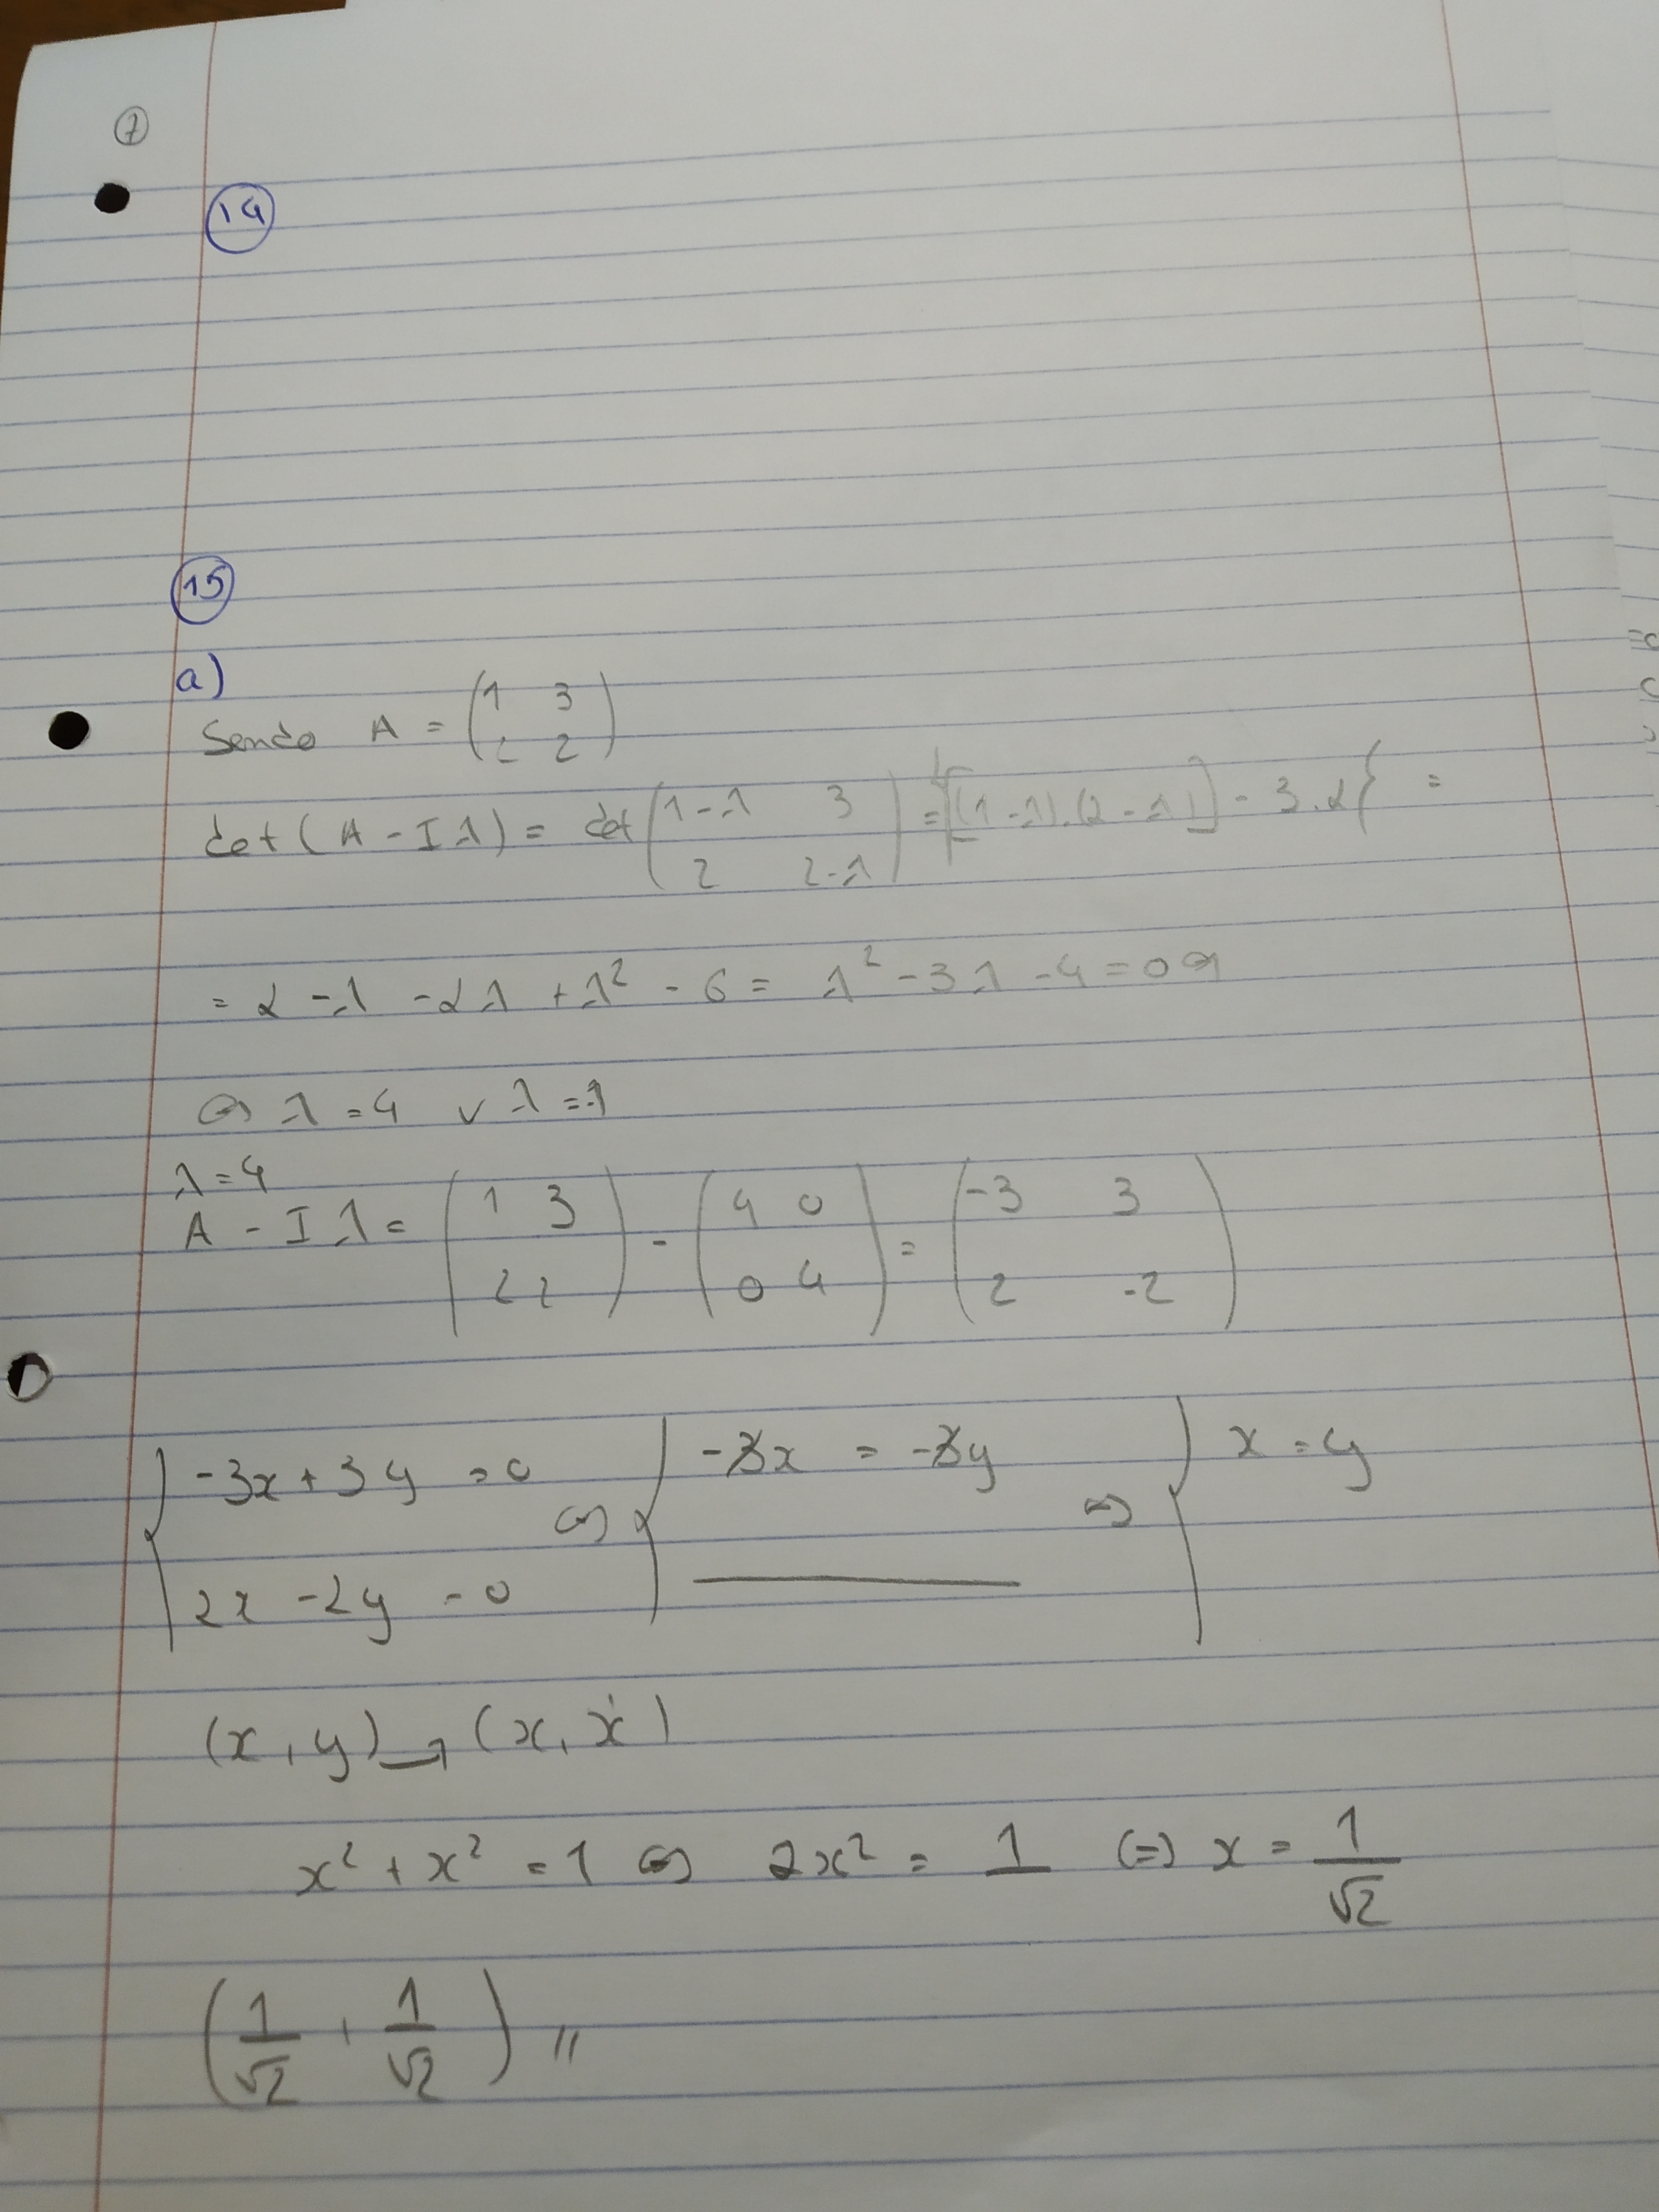 1
14
15
a)
Sendo A = (1 3
2 2)
det(A - Iλ) = det(1-λ 3
2 2-λ) = {[(1-λ).(2-λ)] - 3.2} =
= 2 - λ - 2λ + λ² - 6 = λ² - 3λ - 4 = 0 ⇔
⇔ λ = 4 ∨ λ = -1
λ = 4
A - Iλ = (1 3
2 2) - (4 0
0 4) = (-3 3
2 -2)
{-3x + 3y = 0 ⇔ {-3x = -3y ⇔ {x = y
2x - 2y = 0 ———
(x, y) → (x, x)
x² + x² = 1 ⇔ 2x² = 1 (=) x = 1/√2
(1/√2, 1/√2) //